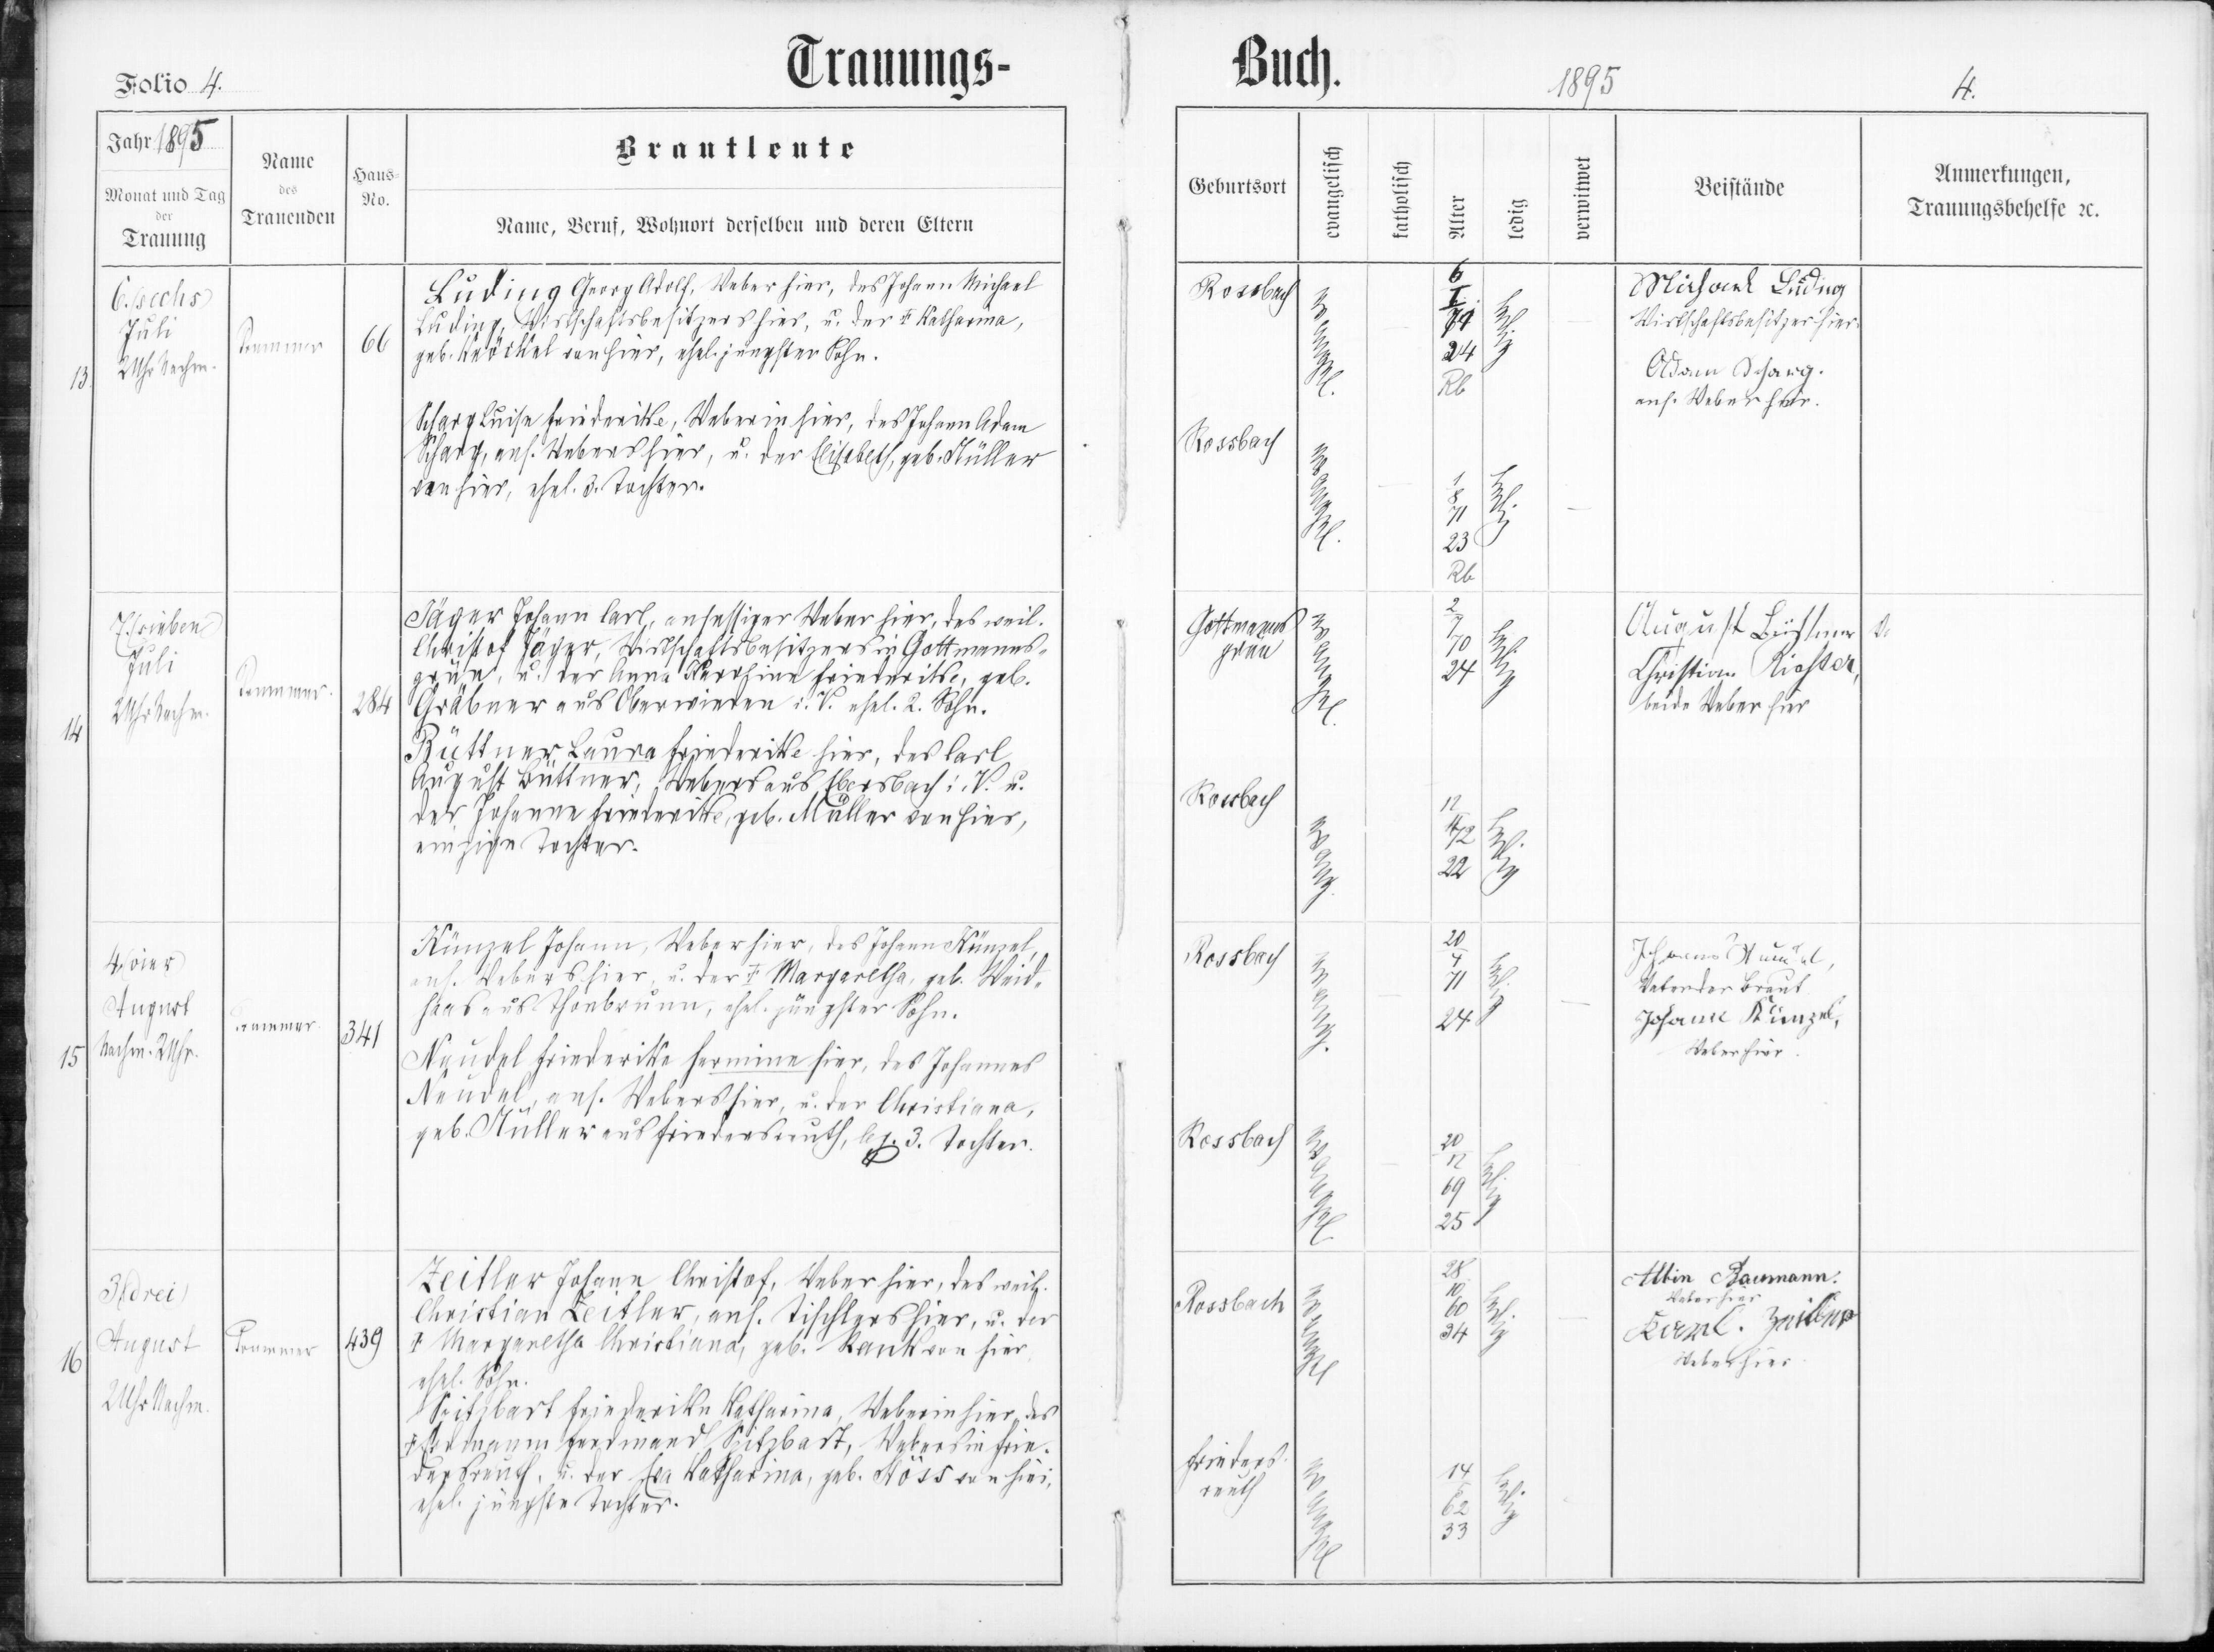 Folio 4.
Trauungs-
Buch.
1895
4.
Jahr 1895
Monat und Tag
der
Trauung
Name
des
Trauenden
Haus-
No.
Brautleute
Name, Beruf, Wohnort derselben und deren Eltern
Geburtsort
evangelisch
katholisch
Alter
ledig
verwitwet
Beistände
Anmerkungen,
Trauungsbehelfe ꝛc.
13.
6. (sechs)
Juli
2 Uhr Nachm.
66
Luding Georg Adolf, Weber hier, des Johann Michael
Luding, Wirtschaftsbesitzers hier, u. der Katharina,
geb. von hier, ehel. jüngster Sohn.
Rossbach
evangel.
6
24
Rb
ledig
Michael Luding
Wirtschaftsbesitzer hier.
Adam Scharg.
ans. Weber hier.
Scharg Luise Friederike, Weberin hier, des Johann Adam
Scharg, ans. Webers hier, u. der Elisabeth, geb. Müller
von hier, ehel. 3. Tochter.
Rossbach
evangel.
1
8
71
23
Rb
ledig
14
7. (sieben)
Juli
2 Uhr Nachm.
284
Jäger Johann Carl, ansässiger Weber hier, des weil.
Christof Jäger, Wirtschaftsbesitzers in Gottmanns-
grün, u. der Anna Friederike, geb.
Gräbner aus Oberwieden i. V. ehel. 2. Sohn.
Gottmanns
grün
evangel.
2
7
70
24
ledig
August Büttner
Christian Richter,
beide Weber hier
Büttner, Laura Friederike hier, des Carl
August Büttner, Webers aus Ebersbach i. V. u.
der Johanne Friederike, geb. Müller von hier,
einzige Tochter.
Rossbach
evang.
72
22
ledig
15
4. (vier)
August
Nachm. 2 Uhr.
341
Künzel Johann, Weber hier, des Johann Künzel,
ans. Webers hier, u. der Margaretha, geb. Weid-
haas aus Thonbrunn, ehel. jüngster Sohn.
Rossbach
evang.
20
4
71
24
ledig
Johann
Vater der Braut
Johann Künzel,
Weber hier.
Neudel Friederike Hermine hier, des Johannes
Neudel, ans. Webers hier, u. der Christiana,
geb. Müller aus Friedersreuth, 3. Tochter.
Rossbach
evangel
20
12
69
25
ledig
16
3. (drei)
August
2 Uhr Nachm.
439
Zeitler Johann Christof, Weber hier, des weil.
Christian Zeitler, ans. Tischlers hier, u. der
Margaretha Christiana, geb. Rank von hier
ehel. Sohn.
Rossbach
evangel
28
10
60
34
ledig
Albin Baumann.
Weber hier
Zeitler
Weber hier
Spitzbart Friederike Katharina, Weberin hier, des
Ferdinand Spitzbart, Webers in Frie-
dersreuth, u. der Eva Katharina, geb. von hier,
ehel. jüngste Tochter.
Frieders-
reuth
evangel
14
62
33
ledig